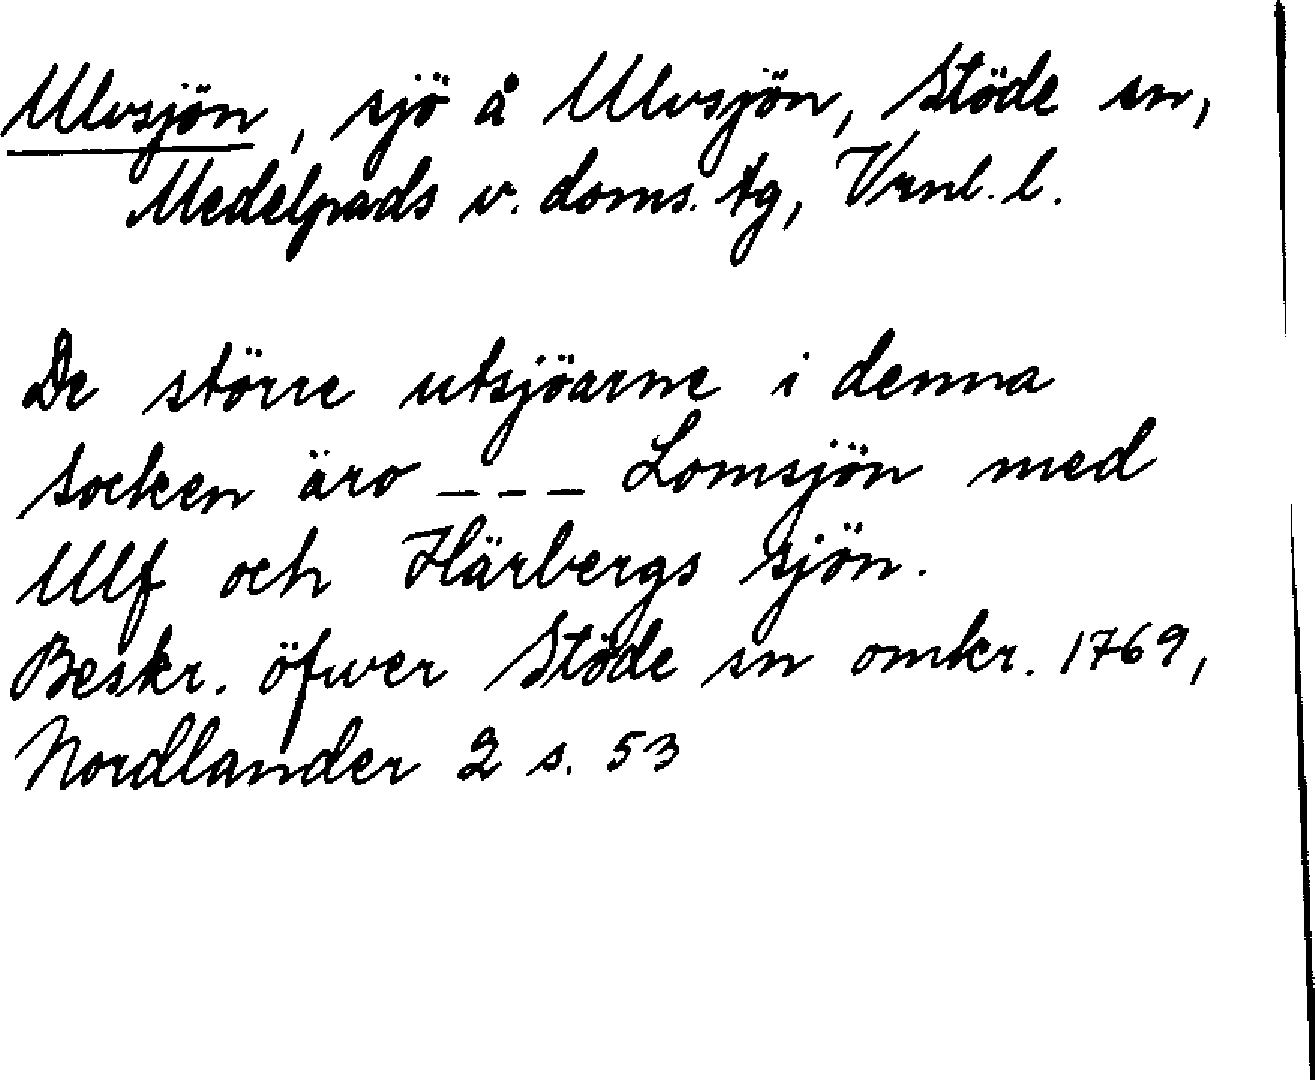 Ulvsjön, sjö å Ulvsjön, Stöde sn,
Medelpads v. doms. tg, Vrnl. l.
De större utsjöarne i denna
Socken äro _ _ _ Lomsjön med
Ulf och Härbergs sjön.
Beskr. öfwer Stöde sn omkr. 1769,
Nordlander 2 s. 53